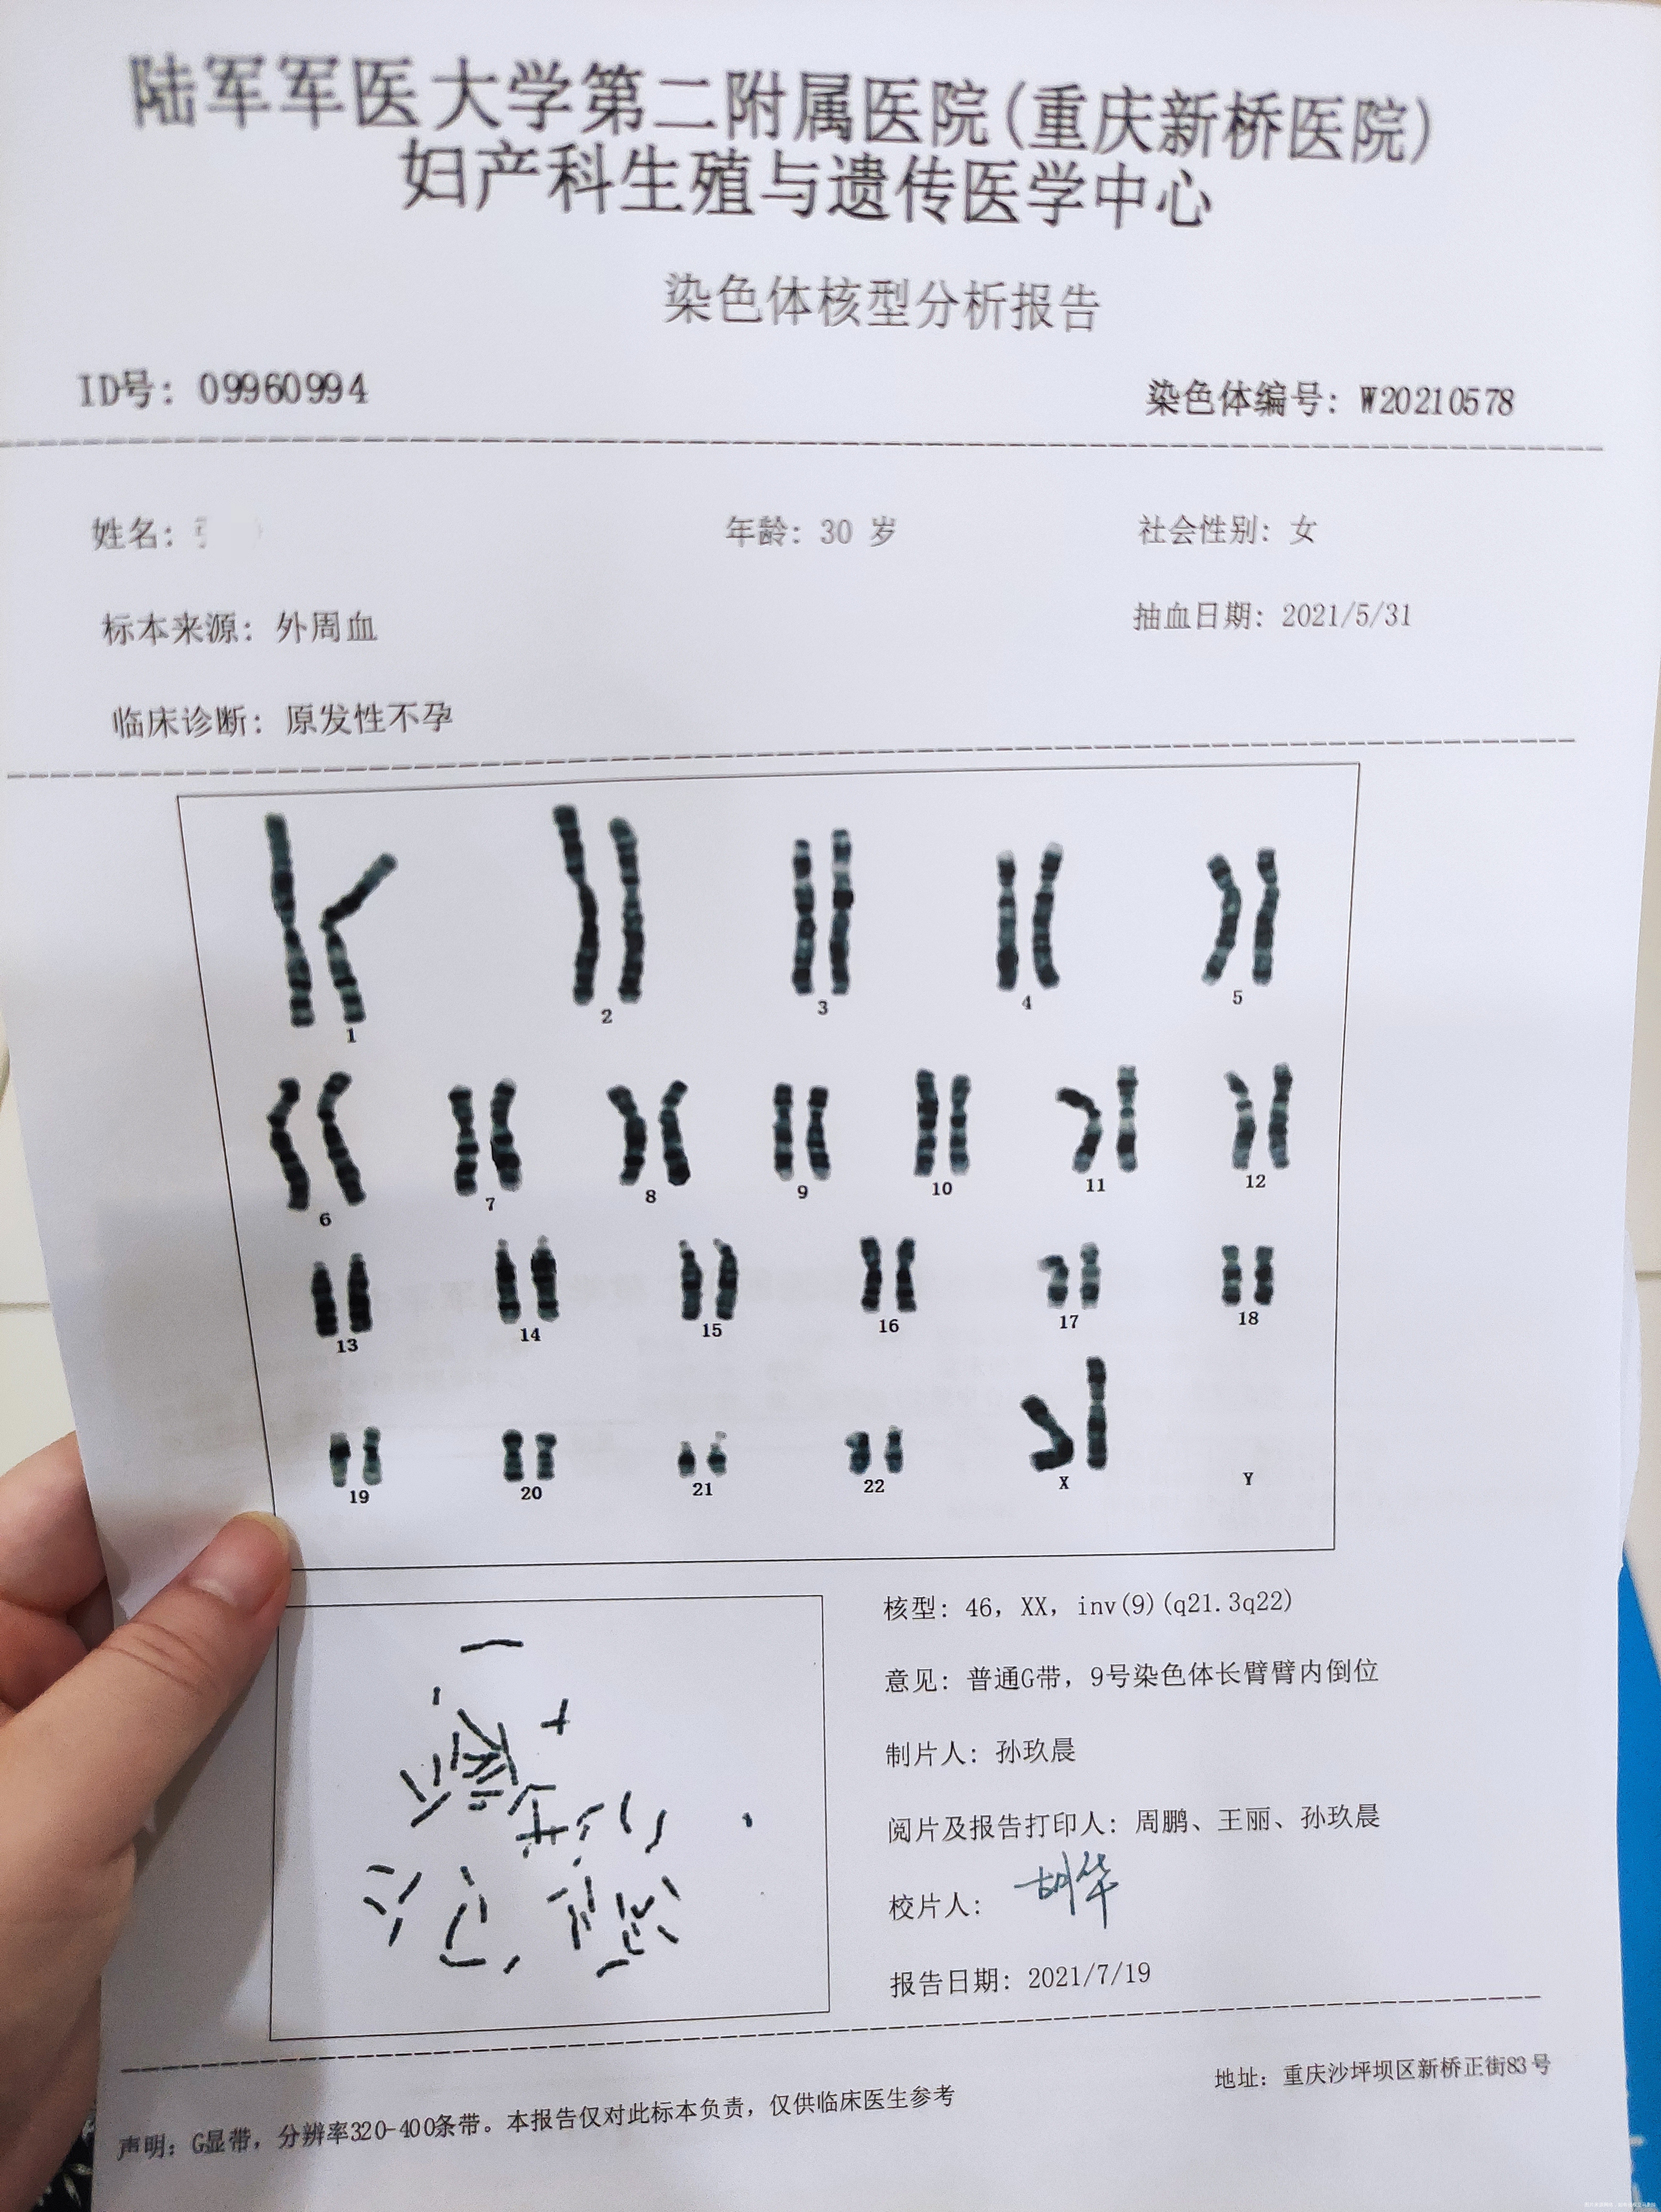 陆军军医大学第二附属医院(重庆新桥医院)
妇产科生殖与遗传医学中心
染色体核型分析报告
ID号: 09960994 染色体编号: W20210578
姓名: 年龄: 30 岁 社会性别: 女
标本来源: 外周血 抽血日期: 2021/5/31
临床诊断: 原发性不孕
1 2 3 4 5
6 7 8 9 10 11 12
13 14 15 16 17 18
19 20 21 22 X Y
核型: 46, XX, inv(9)(q21.3q22)
意见: 普通G带, 9号染色体长臂臂内倒位
制片人: 孙玖晨
阅片及报告打印人: 周鹏、王丽、孙玖晨
校片人: 胡华
报告日期: 2021/7/19
地址: 重庆沙坪坝区新桥正街83号
声明: G显带, 分辨率320-400条带。本报告仅对此标本负责, 仅供临床医生参考